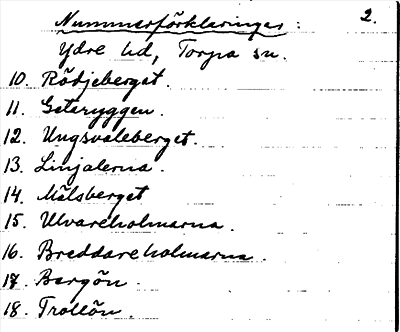 Nummerförklaringar: 2.
Ydre hd, Torpa sn.
10. Rödjeberget.
11. Getaryggen.
12. Ungsvaleberget.
13. Linjalerna.
14. Målsberget
15. Ulvareholmarna.
16. Breddareholmarna.
17. Bergön.
18. Trollön.